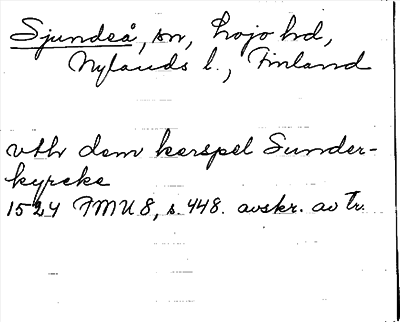 Sjundeå, sn, Lojo hd,
Nylands l., Finland
vth dem kerspel Sunder-
kyrcke
1524 FMU 8, s. 448. avskr. av Tr.